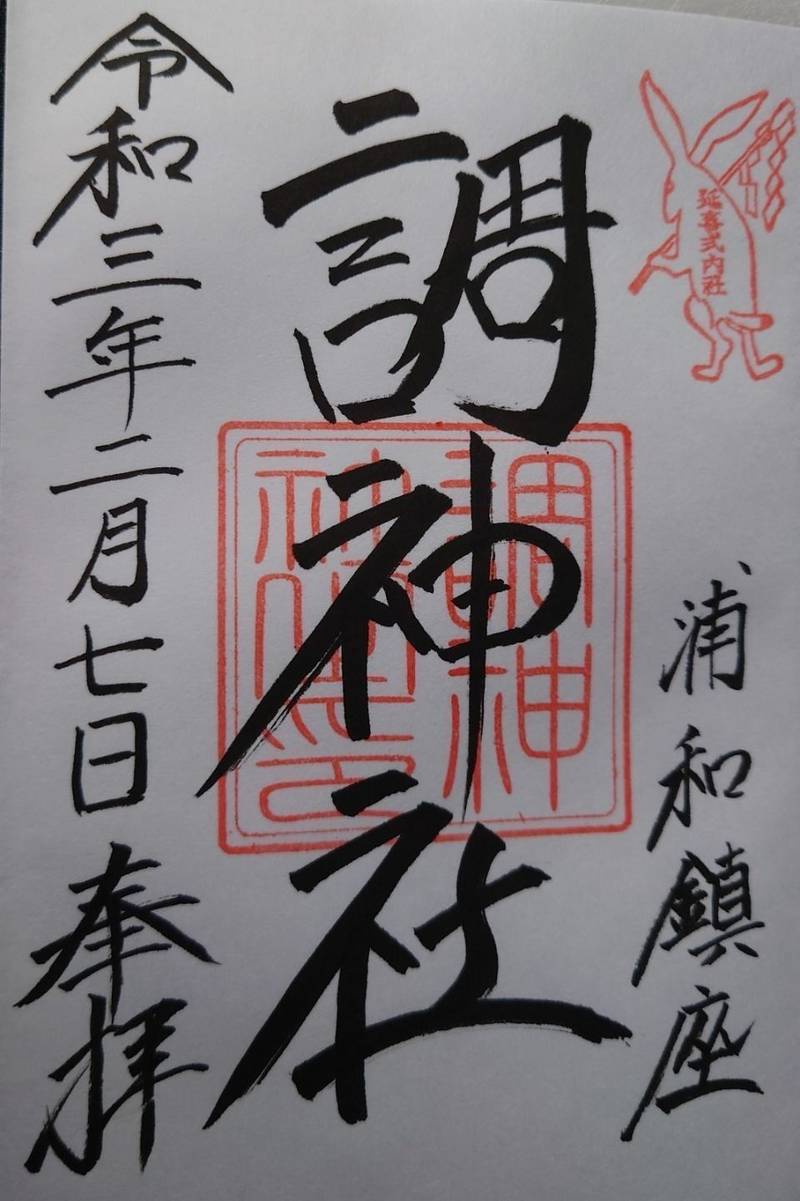 延喜式内社
浦和鎮座
調神社
調神
社之印
令和三年二月七日奉拝